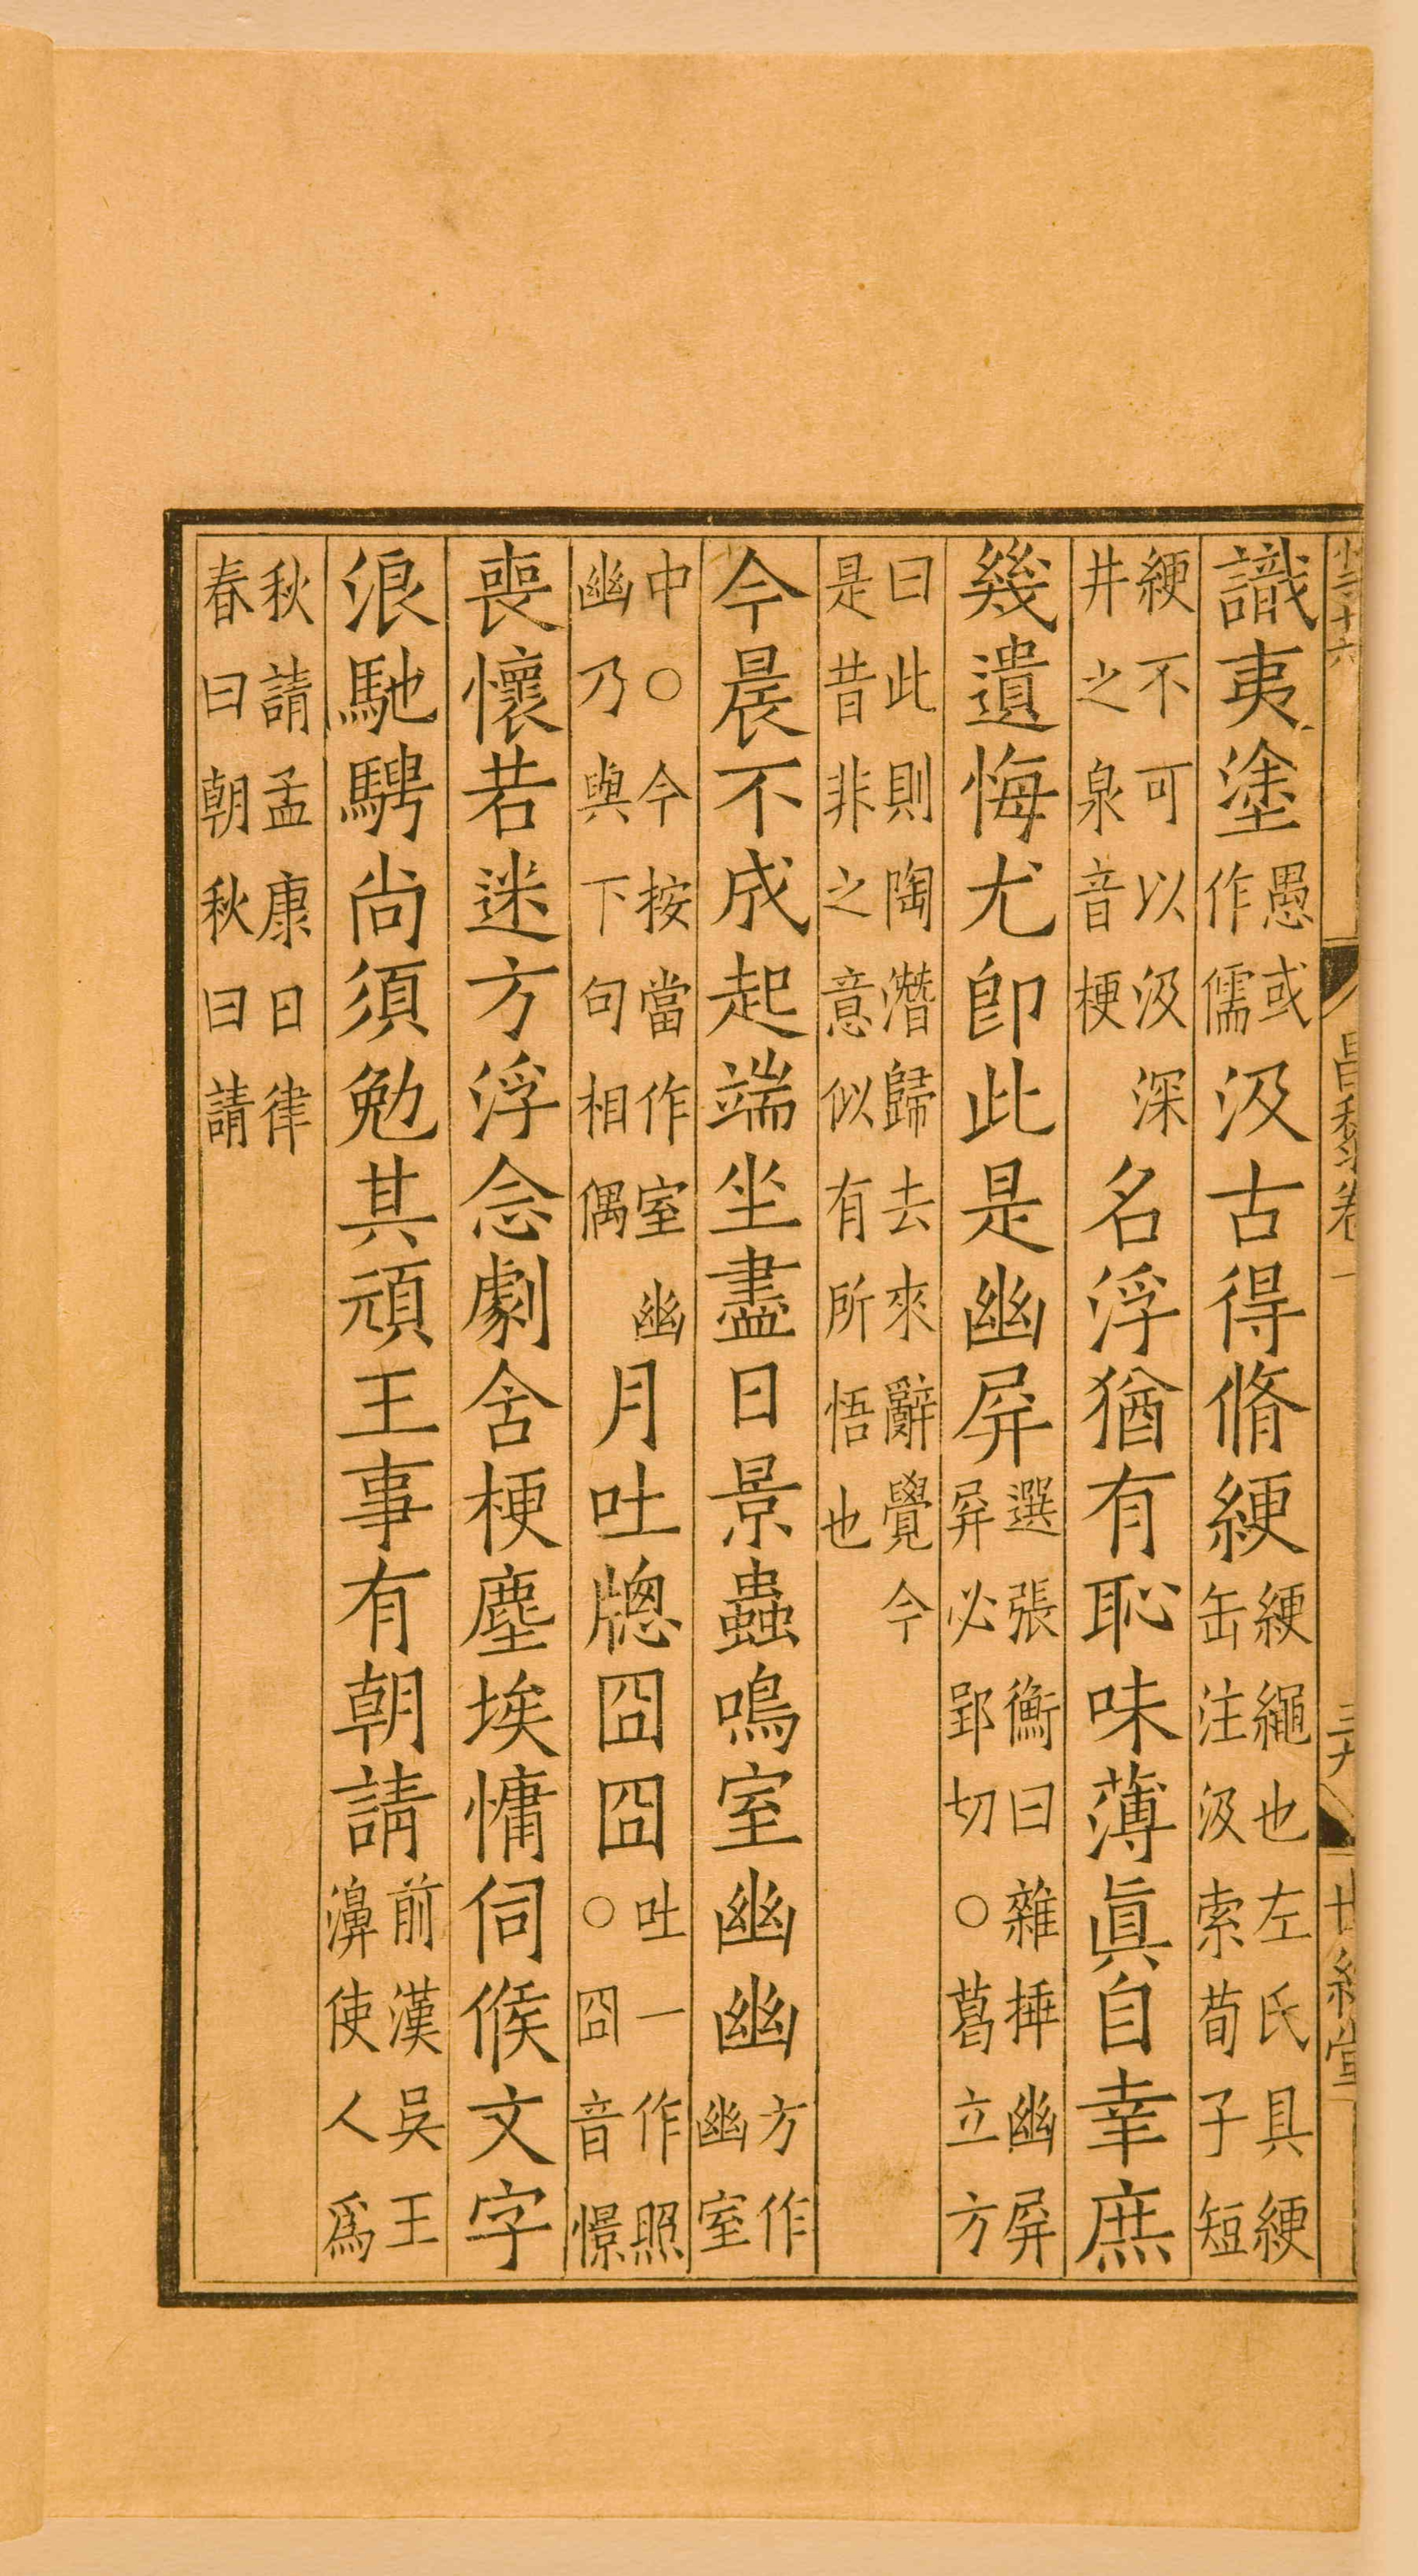 昌黎卷一
識夷塗愚或作儒汲古得脩綆綆繩也左氏具綆缶注汲索荀子短
綆不可以汲深井之泉音梗名浮猶有恥味薄眞自幸庶
幾遺悔尤卽此是幽屏選張衡曰雜揷幽屏屏必郢切○葛立方
曰此則陶潛歸去來辭覺今是昔非之意似有所悟也
今晨不成起端坐盡日景蟲鳴室幽幽方作幽室
中○今按當作室幽幽乃與下句相偶月吐牕囧囧吐一作照○囧音憬
喪懷若迷方浮念劇含梗塵埃慵伺候文字
浪馳騁尚須勉其頑王事有朝請前漢吳王濞使人爲
秋請孟康曰律春曰朝秋曰請